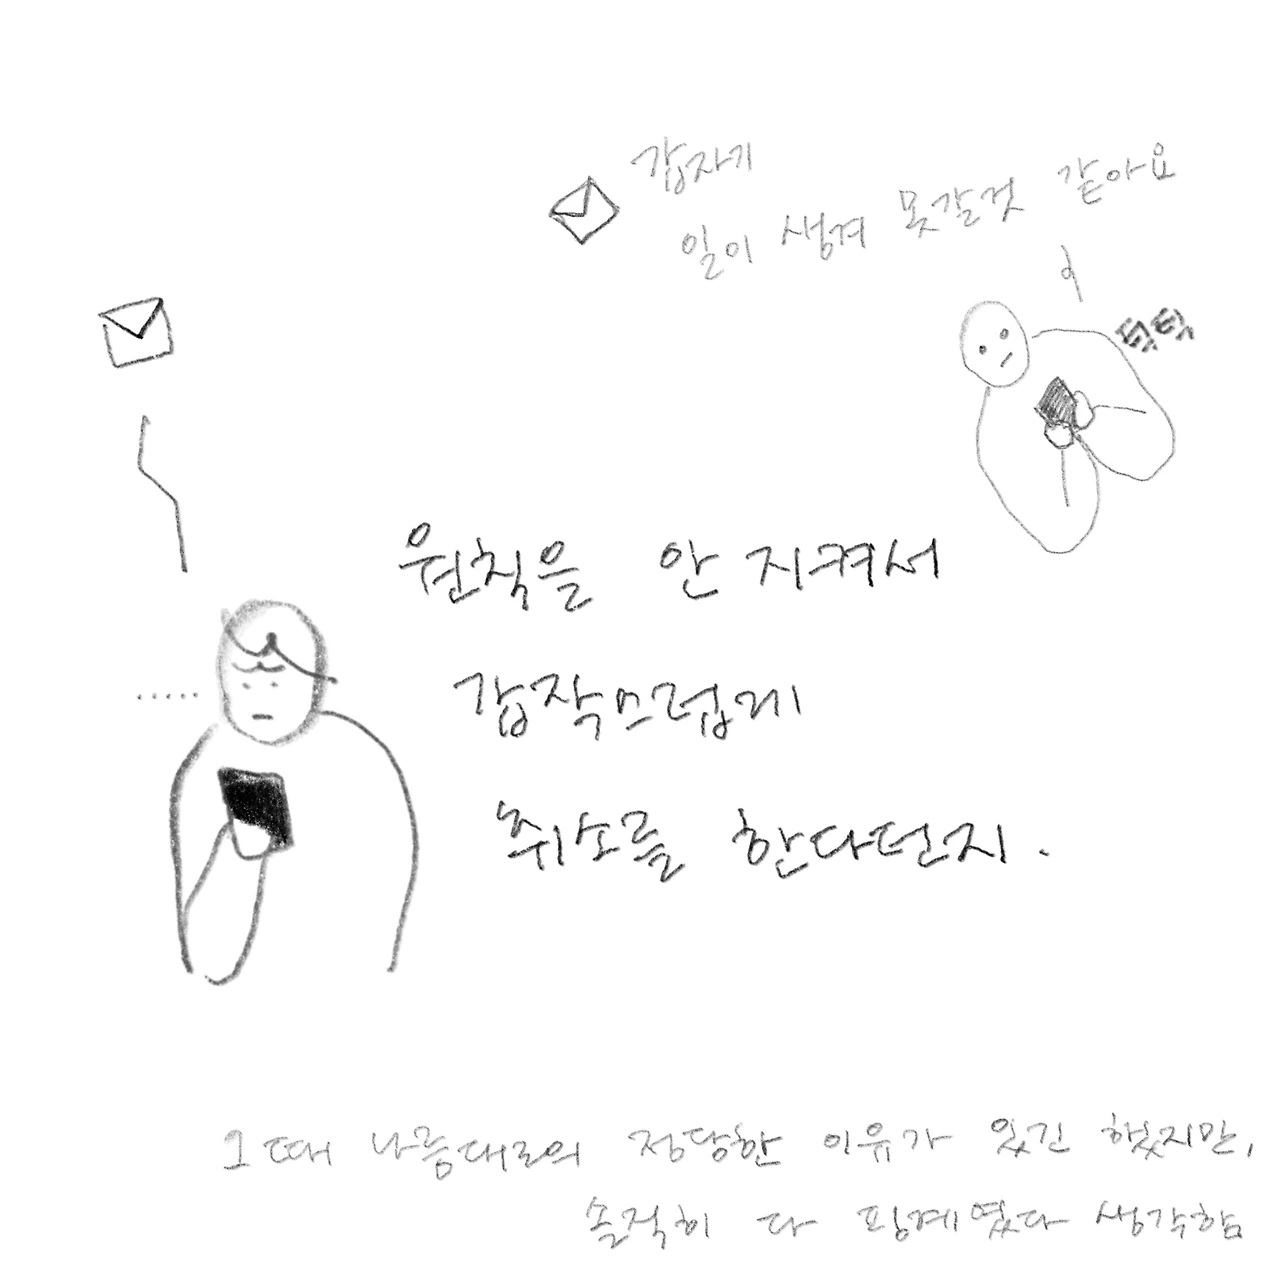 갑자기
일이 생겨 못갈것 같아요
톡톡
원칙을 안 지켜서
갑작스럽게
취소를 한다던지.
그때 나름대로의 정당한 이유가 있긴 했지만,
솔직히 다 핑계였다 생각함